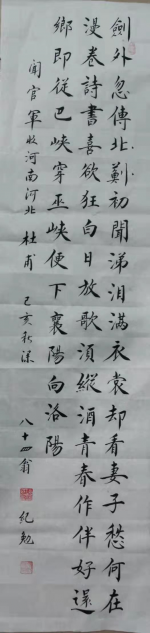 劍外忽傳北薊初聞涕泪滿衣裳却看妻子愁何在
漫卷詩書喜欲狂白日放歌須縱酒青春作伴好還
鄉即從巴峽穿巫峽便下襄陽向洛陽
聞官軍收河南河北 杜甫 己亥秋深
八十四翁 紀勉